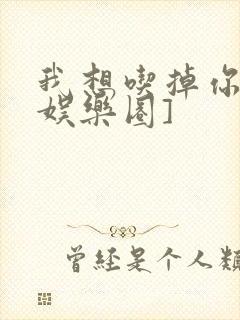 我想喫掉你
娛樂圈]
曾經是个人類